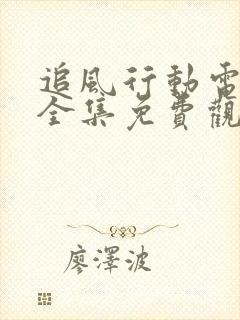 追風行動電
全集免費觀
廖澤波